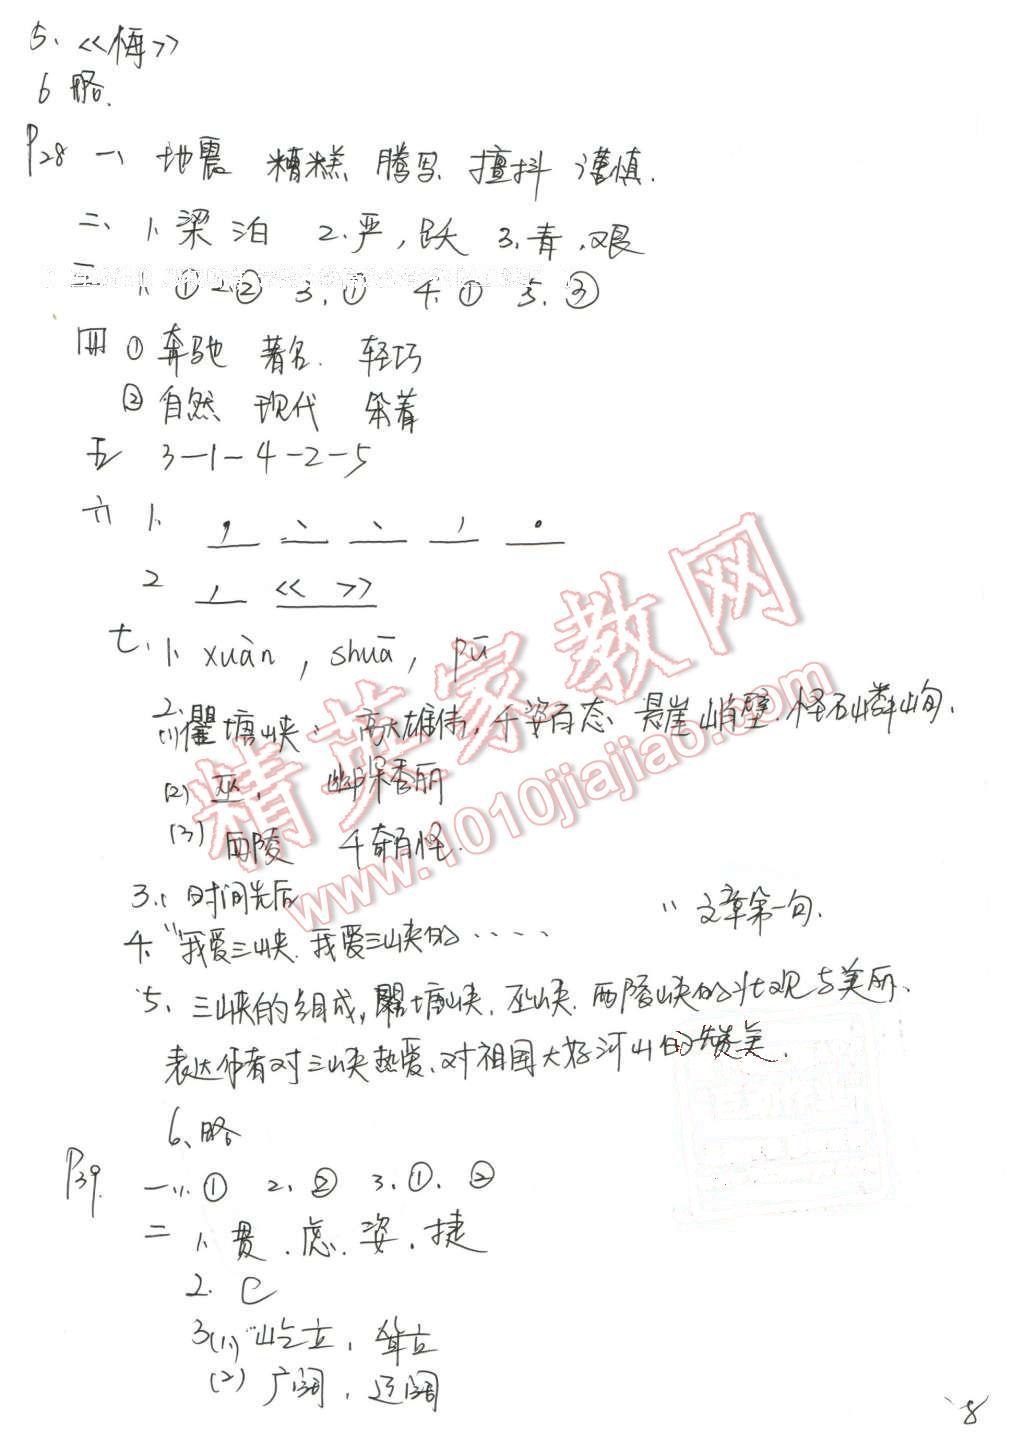 5、《悔》
6 略.
P28 一、地震 糟糕 腾写 擅抖 谨慎.
二、1、梁 泊 2、严，跃 3、青，艰
三 1、① 2、② 3、① 4、① 5、③
四 ① 奔驰 著名. 轻巧
② 自然 现代 笨着
五 3－1－4－2－5
六 1、 ， 、 、 ， 。
2 ， 《 》
七、1、xuàn，shuā，pū
2、(1)瞿塘峡： 高大雄伟，千姿百态 悬崖峭壁.怪石嶙峋.
(2) 巫. 幽深秀丽
(3) 西陵 千奇百怪.
3、时间先后
4、"我爱三峡.我爱三峡的····" 文章第一句.
5、三峡的组成，瞿塘峡.巫峡.西陵峡的壮观与美丽、
表达作者对三峡热爱、对祖国大好河山的赞美.
6、略
P39. 一、1、① 2、② 3、①、②
二 1、贯.虑.姿.捷
2. C
3(1) 屹立，耸立
(2) 广阔，辽阔
8
精英家教网
www.1010jiajiao.com